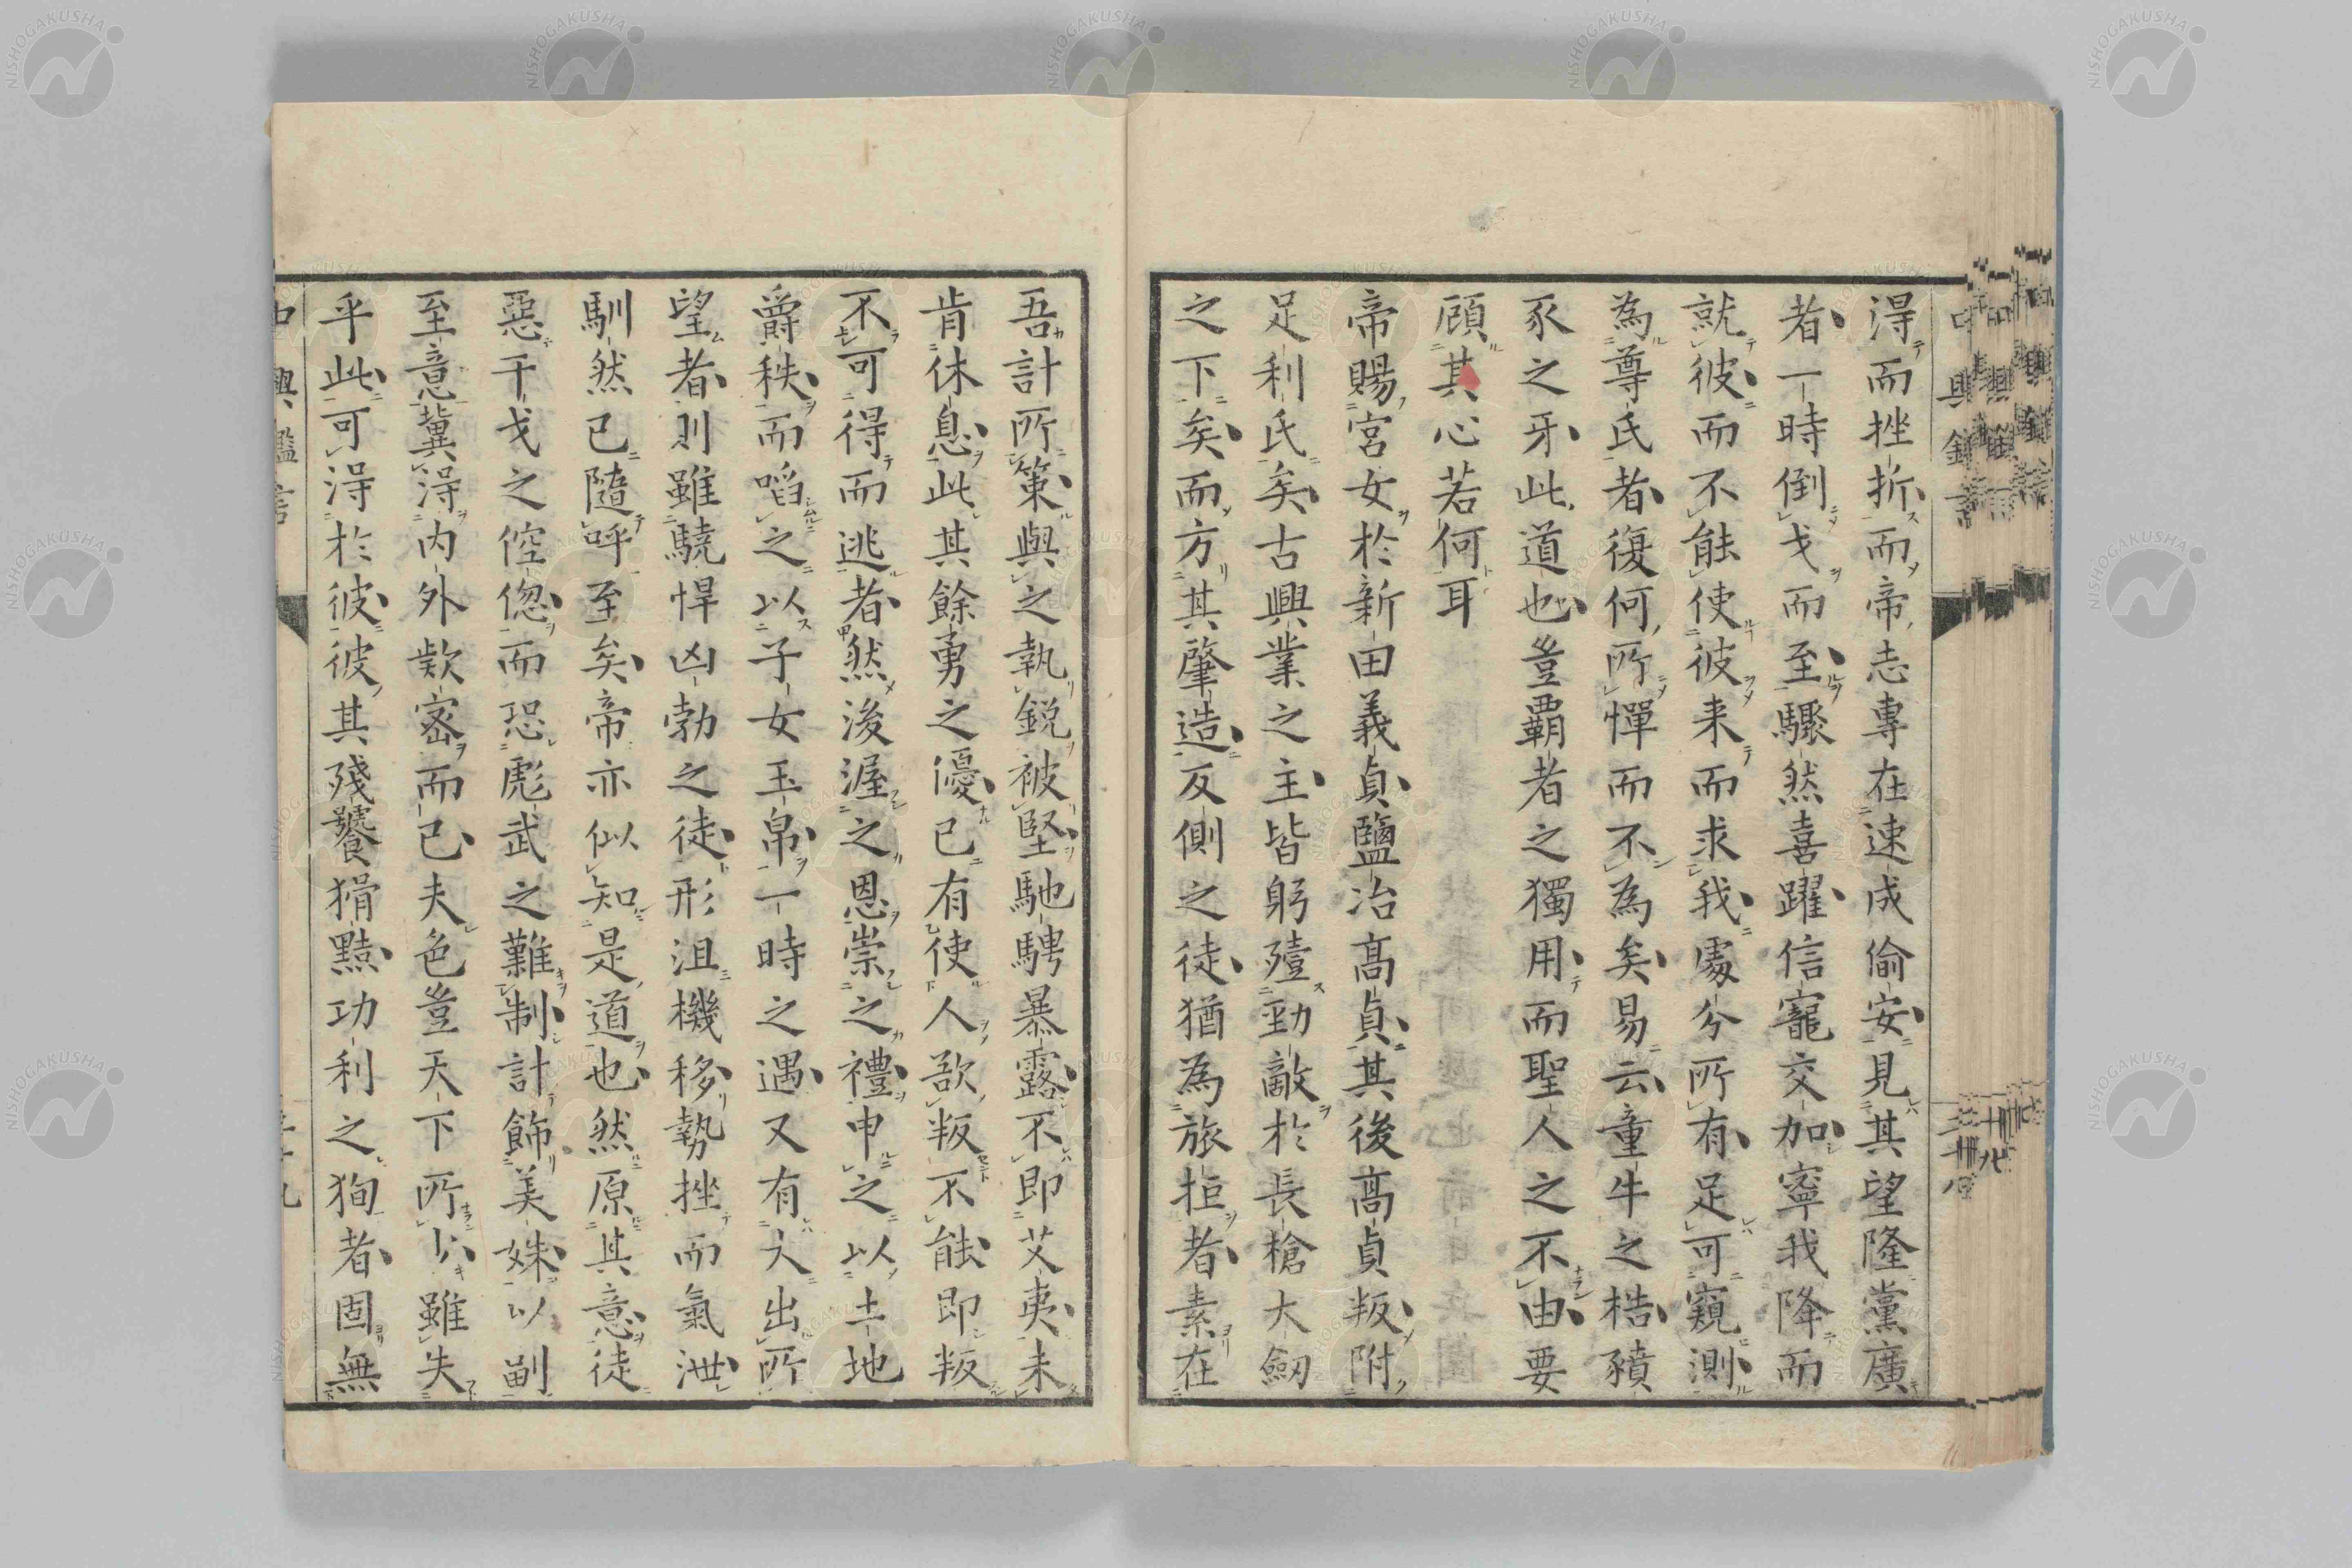 得而挫折而帝志專在速成偷安見其望隆黨廣
者一時倒戈而至驟然喜躍信寵交加寧我降而
就彼而不能使彼来而求我處分所有足可窺測
為尊氏者復何所憚而不為矣易云童牛之梏豶
豕之牙此道也豈覇者之獨用而聖人之不由要
顧其心若何耳
帝賜宮女於新田義貞鹽冶髙貞其後髙貞叛附
足利氏矣古興業之主皆躬殪勁敵於長槍大劔
之下矣而方其肇造反側之徒猶為旅拒者素在
吾計所策與之執鋭被堅馳騁暴露不即艾夷未
肯休息此其餘勇之優已有使人欲叛不能即叛
不可得而逃者然後渥之恩崇之禮申之以土地
爵秩而啗之以子女玉帛一時之遇又有大出所
望者則雖驍悍凶勃之徒形沮機移勢挫而氣泄
馴然已隨呼至矣帝亦似知是道也然原其意徒
惡干戈之倥偬而恐彪武之難制計飾美姝以副
至意冀得内外歡密而已夫色豈天下所少雖失
乎此可得於彼彼其殘饕狷黠功利之狥者固無
中興鑑言
NISHOGAKUSHA